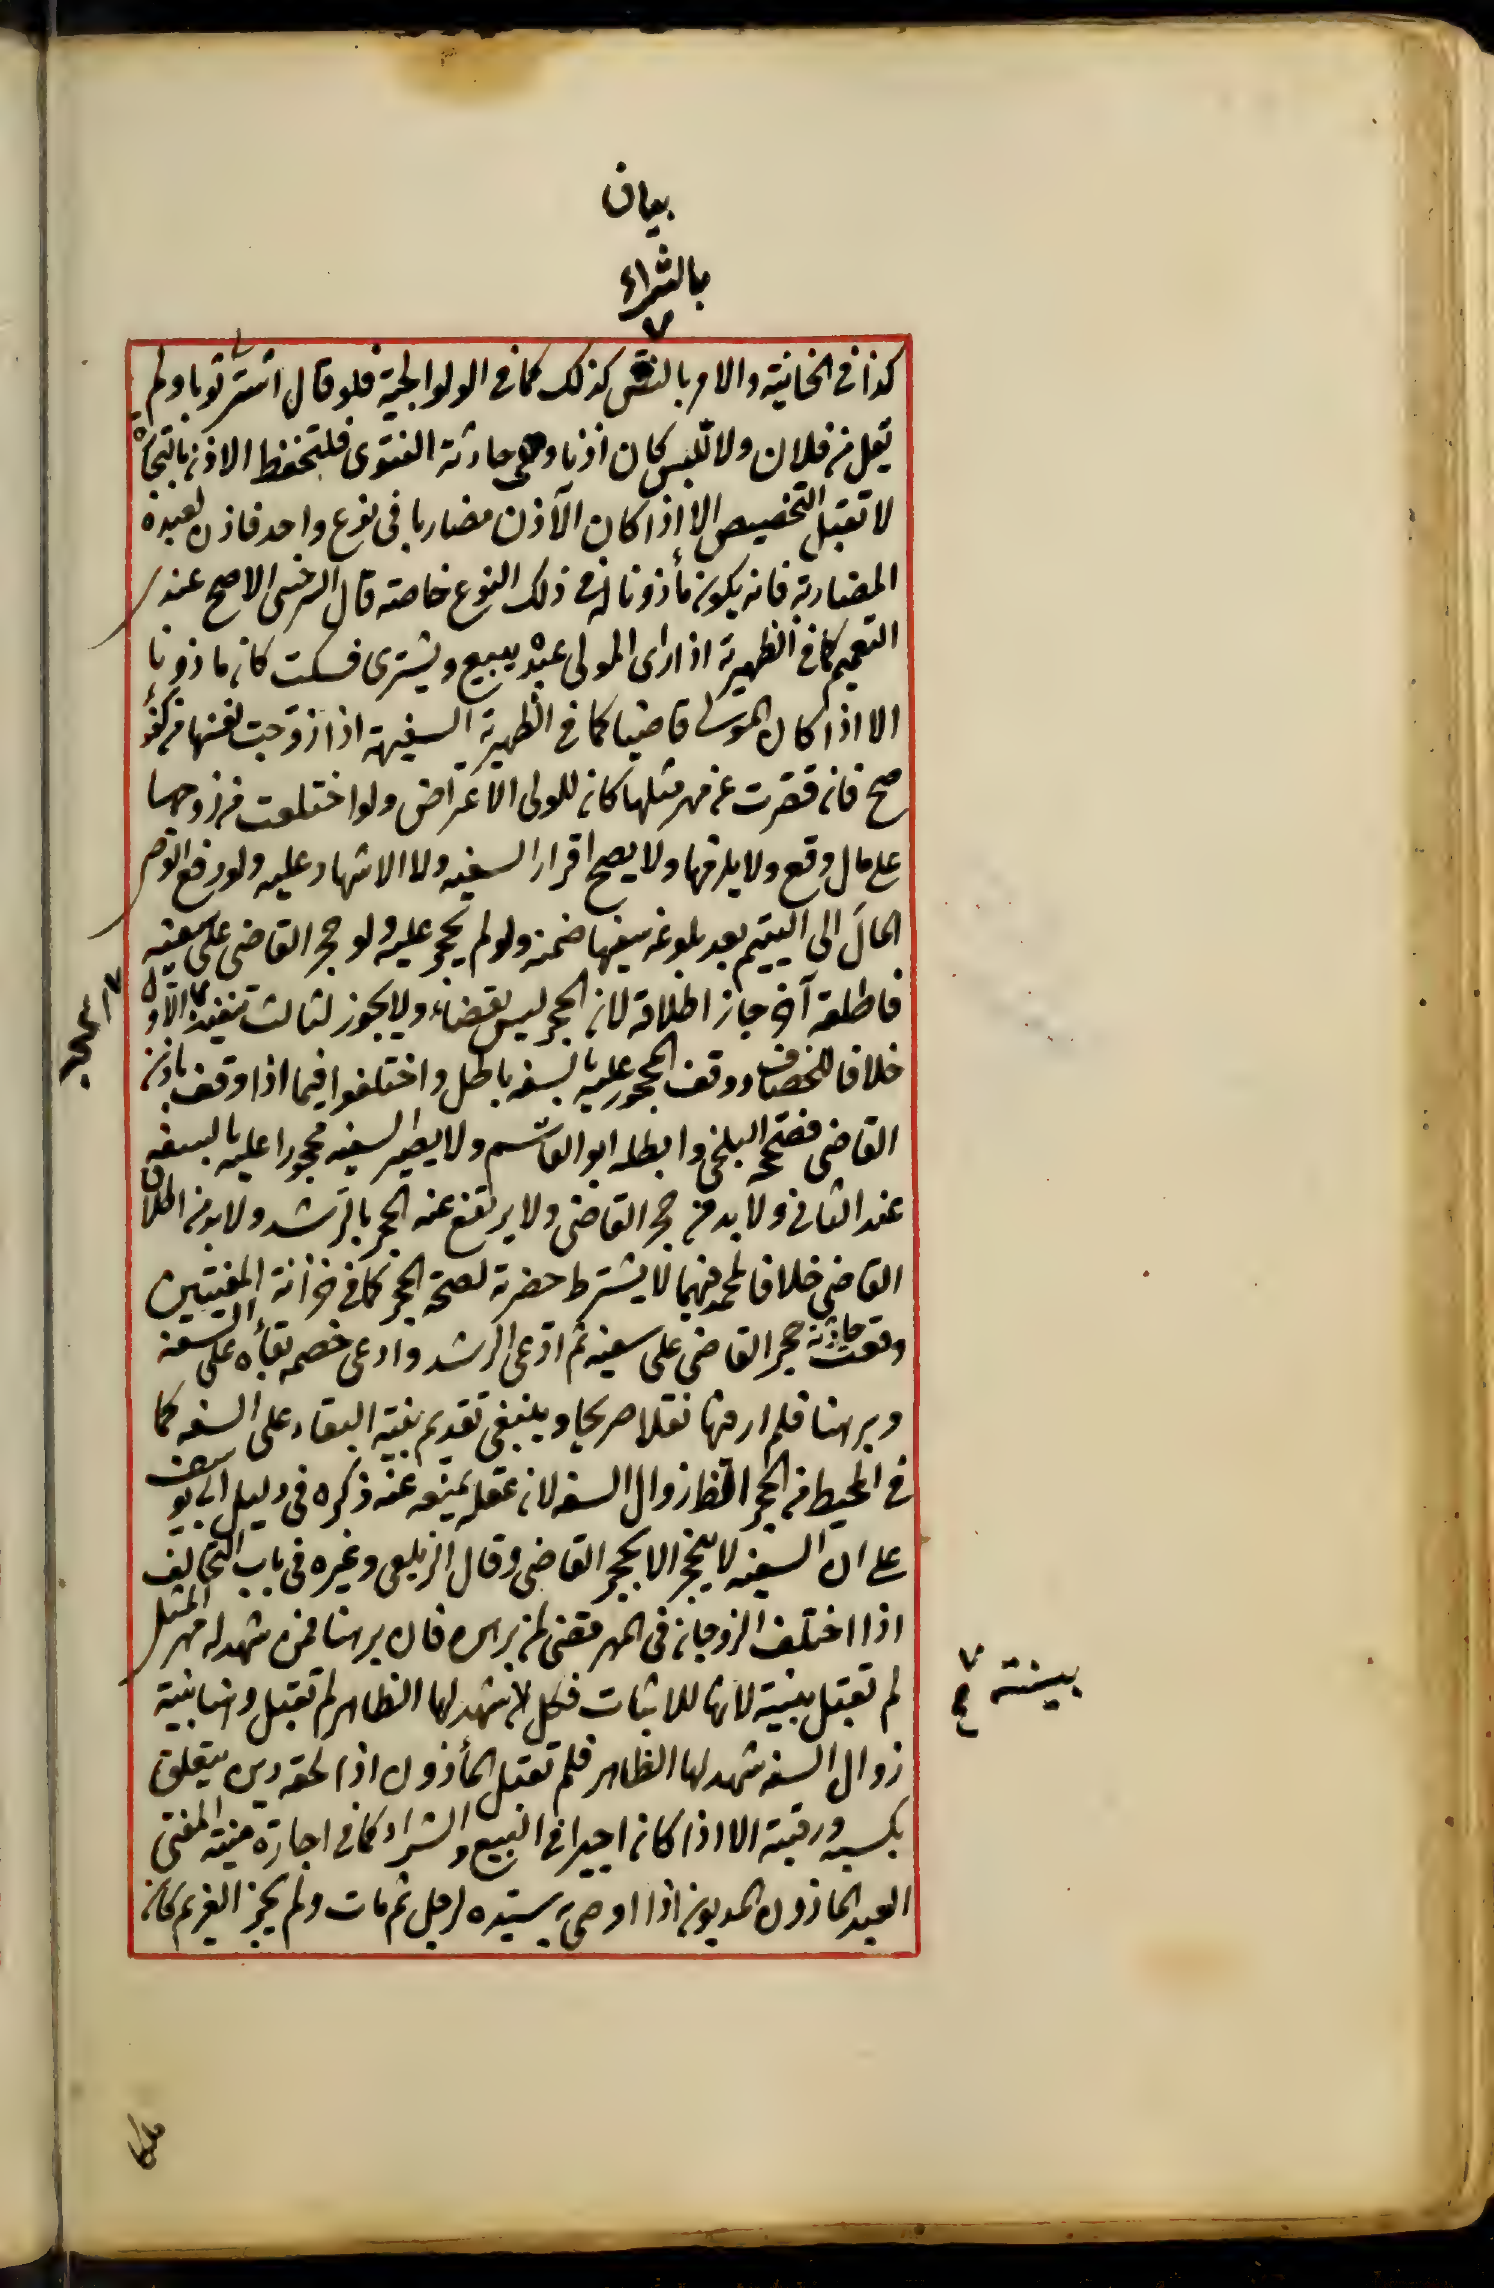 بيان
بالشراء
كذا في الخانية والامر بالشراء كذلك كما في الولوالجية فلو قال اشتر ثوبا ولم
يقل من فلان ولا للبس كان اذنا وهي حادثة الفتوى فلتحفظ الاذن بالتجارة
لا تقبل التخصيص الا اذا كان الآذن مضاربا في نوع واحد فاذن لعبده
المضاربة فانه يكون مأذونا له في ذلك النوع خاصة قال السرخسي الاصح عند
التعميم كما في الظهيرية اذا راى المولى عبده يبيع ويشترى فسكت كان ماذونا
الا اذا كان المولى قاضيا كما في الظهيرية السفيهة اذا زوجت نفسها من كفؤ
صح فان قصرت عن مهر مثلها كان للولى الاعتراض ولو اختلعت من زوجها
على مال وقع ولا يلزمها ولا يصح اقرار السفيه ولا الاشهاد عليه ولو دفع الوصي
المال الى اليتيم بعد بلوغه سفيها ضمنه ولو لم يحجر عليه ولو حجر القاضى على سفيه
فاطلقه آخر جاز اطلاقه لان الحجر ليس بقضاء ولا يجوز لثالث تنفيذ الاول
خلافا للخصاف ووقف المحجور عليه بالسفه باطل واختلفوا فيما اذا وقف باذن
القاضى فصححه البلخى وابطله ابو القاسم ولا يصير السفيه محجورا عليه بالسفه
عند الثانى ولا بد من حجر القاضى ولا يرتفع عنه الحجر بالرشد ولا بد من اطلاق
القاضى خلافا لمحمد فيهما لا يشترط حضرته لصحة الحجر كما في خزانة المفتيين
وقعت حادثة حجر القاضى على سفيه ثم ادعى الرشد وادعى خصمه بقاءه على السفه
وبرهنا فلم ار فيها نقلا صريحا وينبغي تقديم بينة البقاء على السفه كما
في المحيط من الحجر الظاهر زوال السفه لان عقله يمنعه عنه ذكره في دليل ابى يوسف
على ان السفيه لا ينحجر الا بحجر القاضى وقال الزيلعى وغيره في باب التحالف
اذا اختلف الزوجان في المهر قضى لمن برهن فان برهنا فمن شهد له مهر المثل
لم تقبل بينته لانها للاثبات فكل بينة شهد لها الظاهر لم تقبل وهنا بينة
زوال السفه شهد لها الظاهر فلم تقبل المأذون اذا لحقه دين يتعلق
بكسبه ورقبته الا اذا كان اجيرا في البيع والشراء كما في اجارة منية المفتى
العبد الماذون المديون اذا اوصى به سيده لرجل ثم مات ولم يجز الغريم كان
بينة